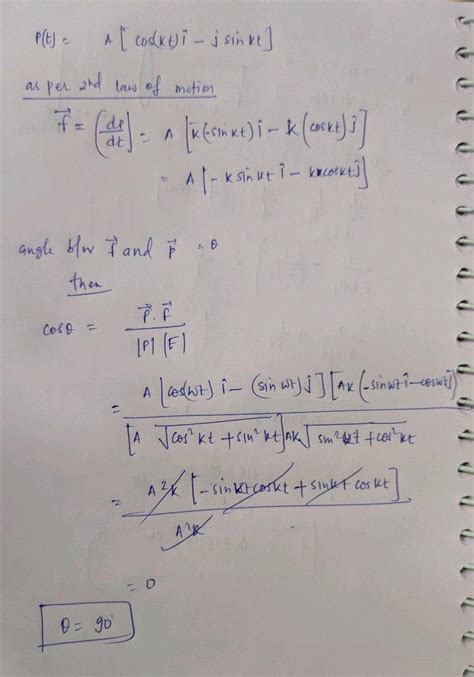 P(t) = A [ cos(kt) î - ĵ sin kt ]
as per 2nd law of motion
f⃗ = (dp/dt) = A [ k(-sin kt) î - k (cos kt) ĵ ]
= A [ -k sin kt î - k cos kt ĵ ]
angle b/w f⃗ and p⃗ = θ
then
cosθ = P⃗ . f⃗ / |P| |E|
= A [ cos(wt) î - (sin wt) ĵ ] [ AK (-sin wt î - cos wt ĵ) / [A √cos² kt + sin² kt] AK √sin² kt + cos² kt
= A²K [ -sin kt cos kt + sin kt cos kt ] / A²K
= 0
θ = 90°